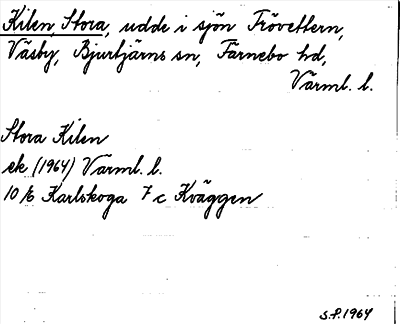 Kilen, Stora, udde i sjön Frövettern,
Väsby, Bjurtjärns sn, Färnebo hd,
Värml. l.
Stora Kilen
ek (1964) Värml. l.
10 E Karlskoga 7 c Kväggen
S.P. 1964